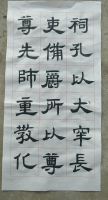 祠孔以大宰長
吏備爵所以尊
尊先師重教化